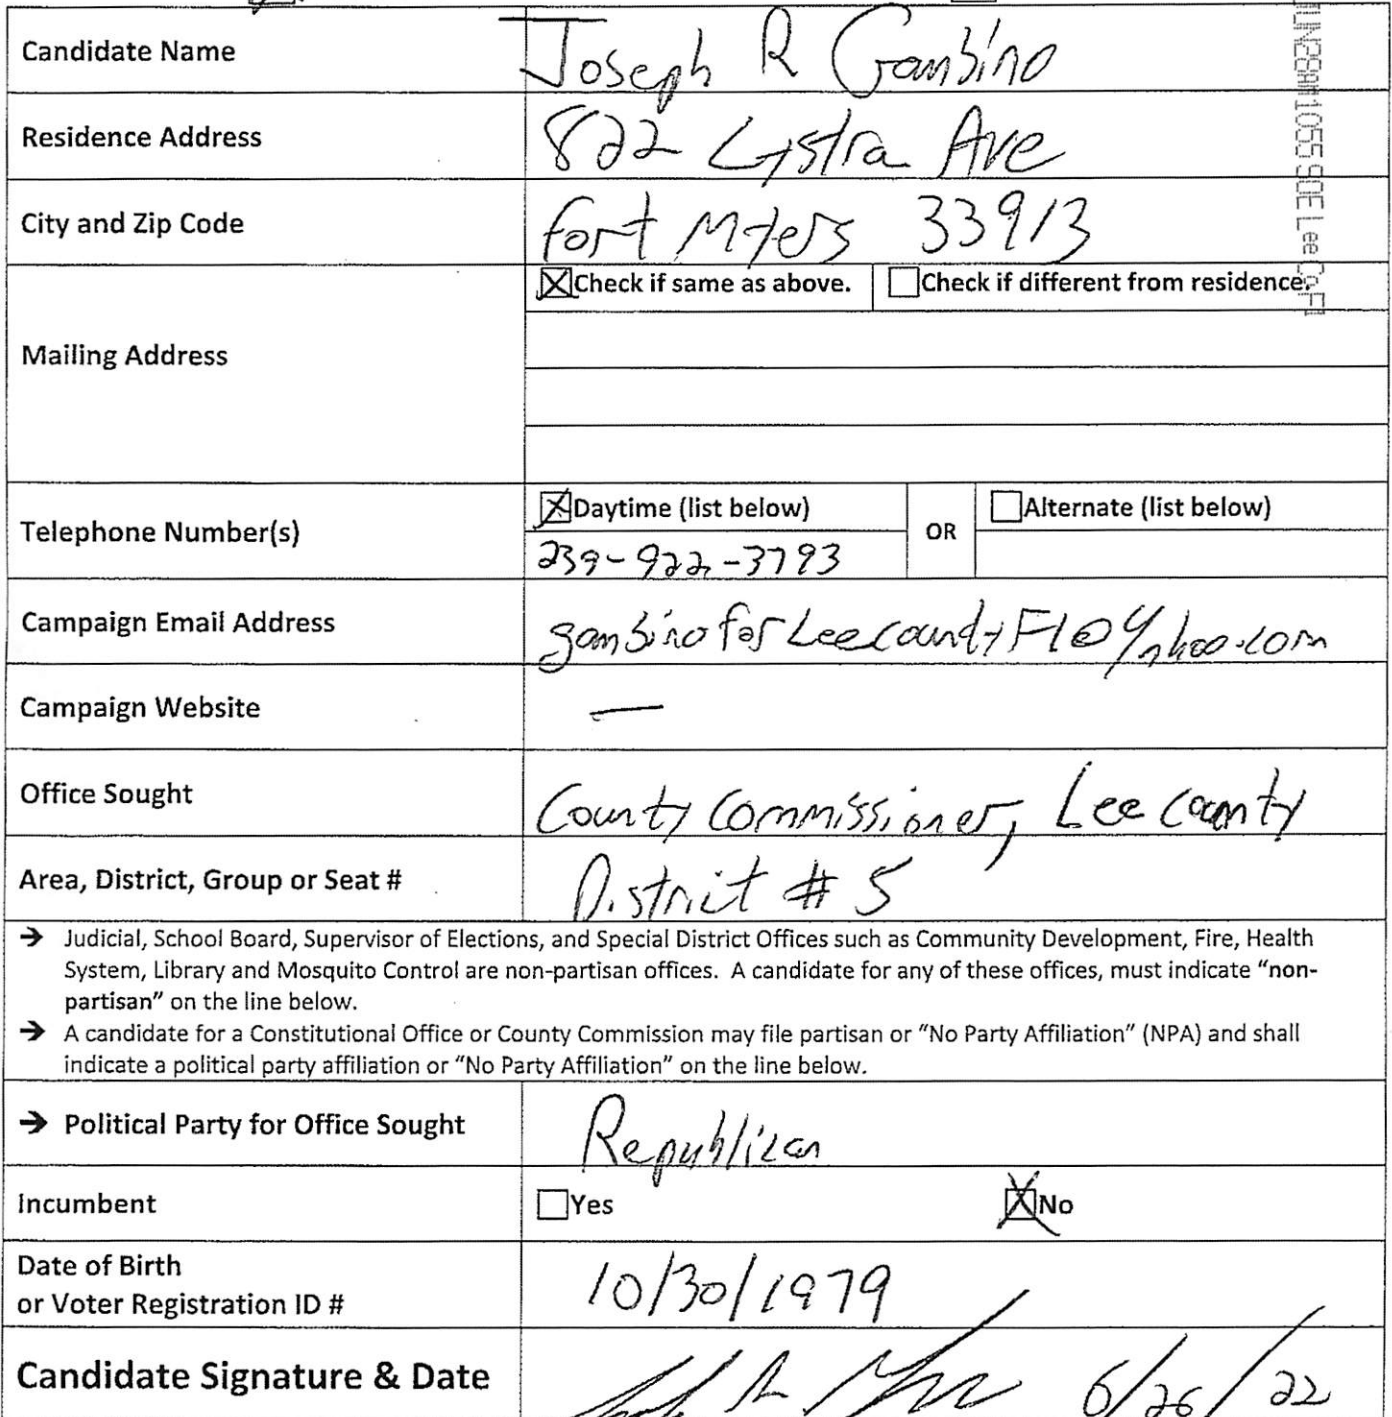 Candidate Name Joseph R Gambino
Residence Address 822 Lystra Ave
City and Zip Code Fort Myers 33913
Mailing Address
☒ Check if same as above. ☐ Check if different from residence.
Telephone Number(s)
☒ Daytime (list below) OR ☐ Alternate (list below)
239-922-3793
Campaign Email Address gambinoforLeecountyFl@Yahoo.com
Campaign Website —
Office Sought County Commissioner, Lee County
Area, District, Group or Seat # District # 5
→ Judicial, School Board, Supervisor of Elections, and Special District Offices such as Community Development, Fire, Health
System, Library and Mosquito Control are non-partisan offices. A candidate for any of these offices, must indicate “non-
partisan” on the line below.
→ A candidate for a Constitutional Office or County Commission may file partisan or “No Party Affiliation” (NPA) and shall
indicate a political party affiliation or “No Party Affiliation” on the line below.
→ Political Party for Office Sought Republican
Incumbent ☐ Yes ☒ No
Date of Birth
or Voter Registration ID # 10/30/1979
Candidate Signature & Date 6/26/22
JUN28AM1055 SOE Lee Co Fl